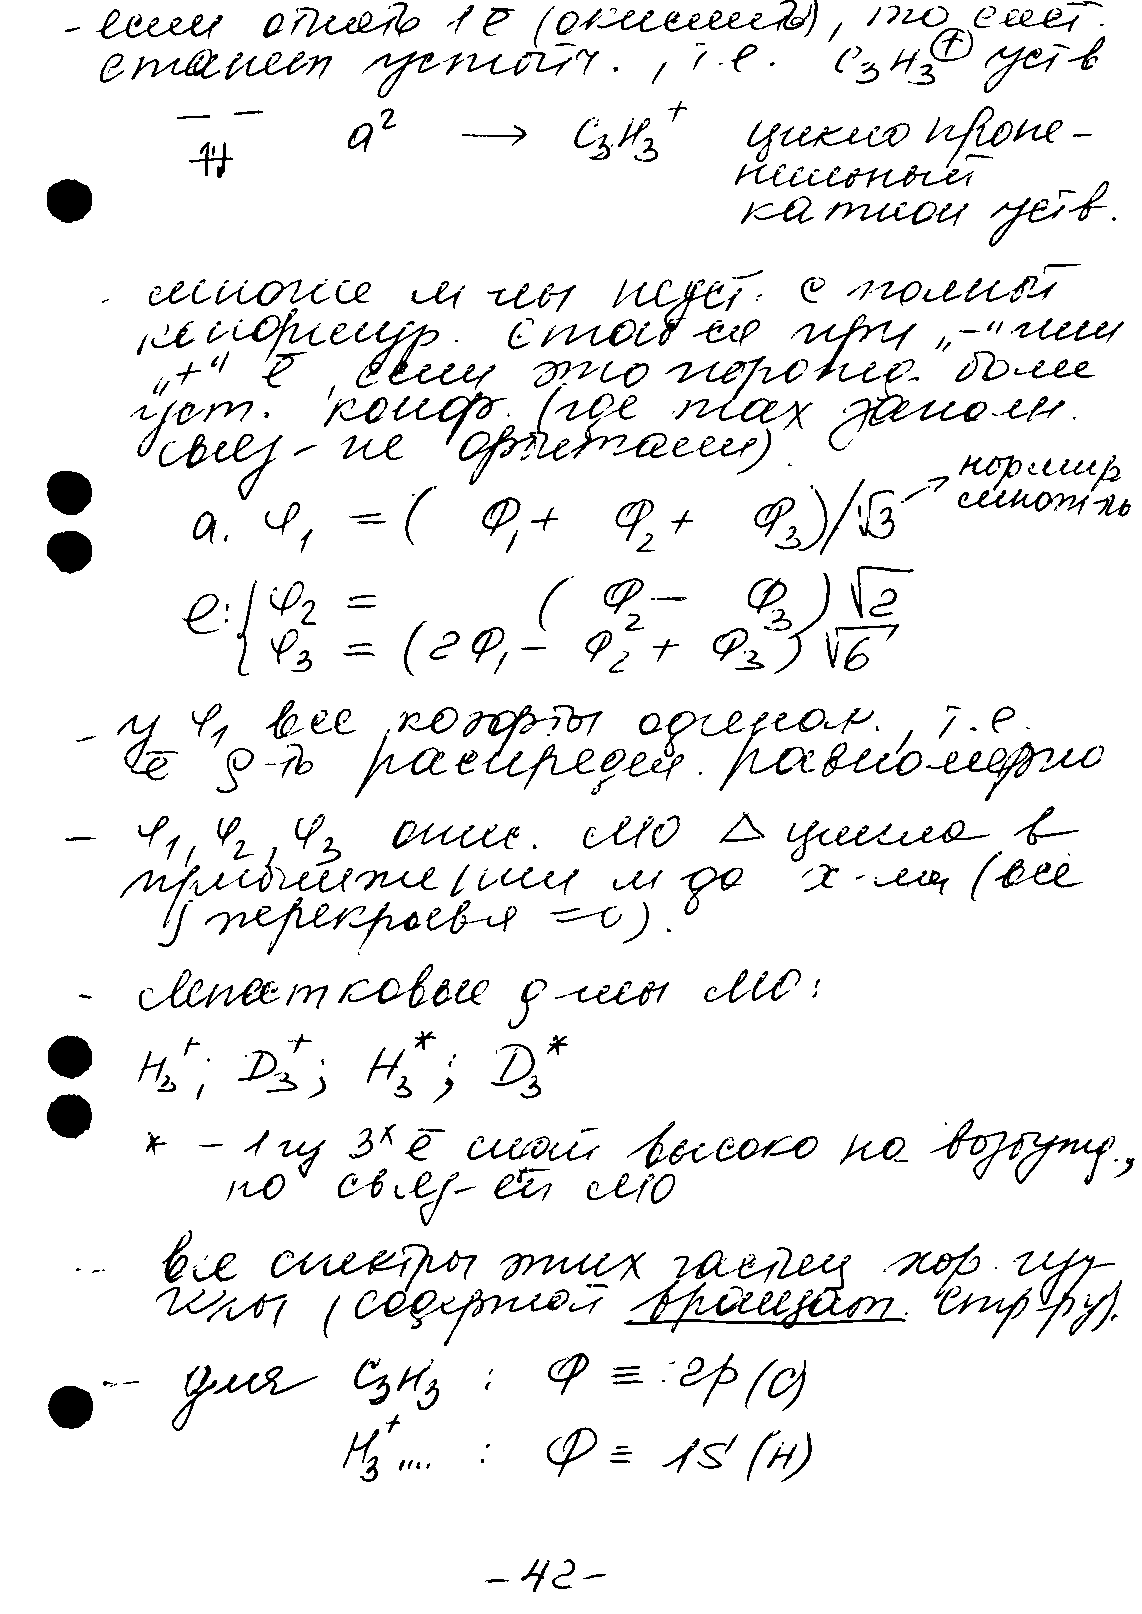 - если отнять 1ē (окислить), то сист.
станет устойч., т.е. C₃H₃⊕ уств
— —
⥮ a² → C₃H₃⁺ циклопропе-
нильный
катион уств.
многие м-лы неуст. с полной
конфигур. стаб-ся при „-“ или
„+“ ē, если это порожд. более
уст. конф. (где max заполн.
связ-ие орбитали)
a. φ₁ = ( Φ₁ + Φ₂ + Φ₃)/√3 → нормир
множ-ль
e: { φ₂ = ( Φ₂ - Φ₃ ) √2
φ₃ = (2Φ₁ - Φ₂ + Φ₃) √6
- у φ₁ все коэф-ты одинак., т.е.
ē ρ-ть распредел. равномерно
- φ₁, φ₂, φ₃ опис. МО △ цикла в
приближении м-да х-ля (все
∫ перекрывя = 0).
- Трёхатомные
H₃⁺; D₃⁺; H₃*; D₃*
* - 1 из 3ˣ ē высоко на возбужд.,
но связ-ей МО
-- все спектры этих частиц хор. изу-
чены (содержат вращат. стр-ру).
-- для C₃H₃ : Φ ≡ 2p (C)
H₃⁺.... : Φ ≡ 1S (H)
- 42 -